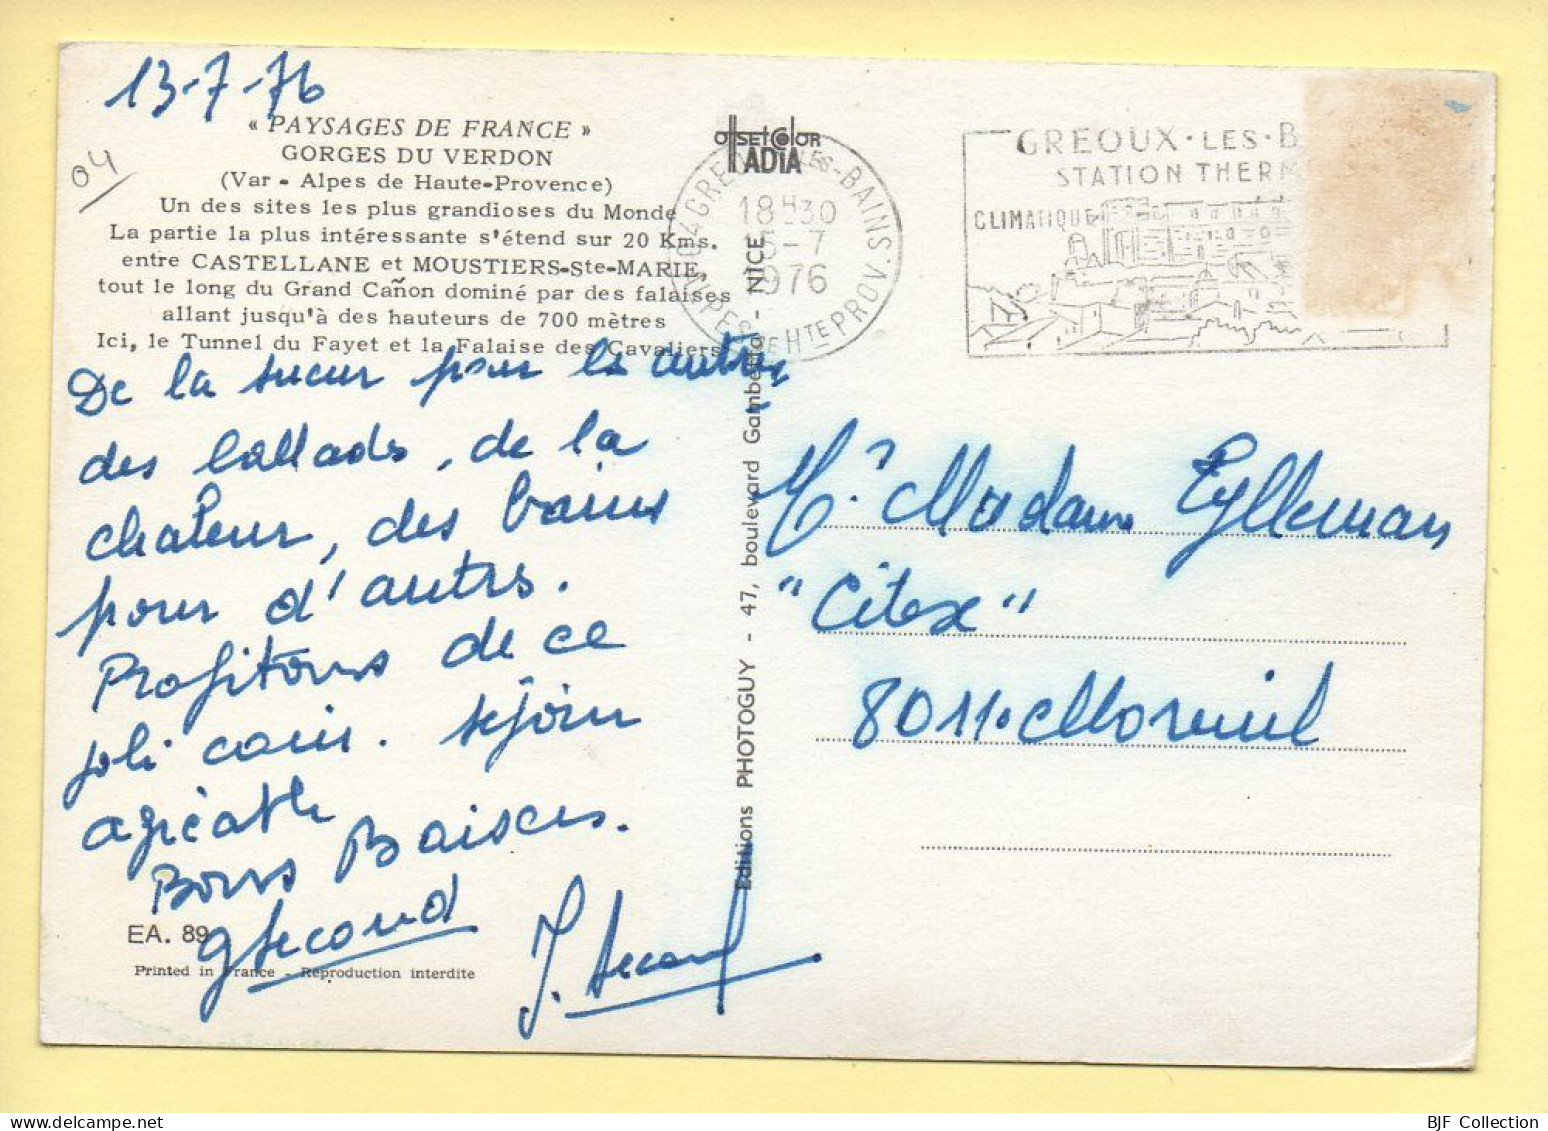 13-7-76
« PAYSAGES DE FRANCE »
GORGES DU VERDON
(Var - Alpes de Haute-Provence)
Un des sites les plus grandioses du Monde
La partie la plus intéressante s'étend sur 20 Kms.
entre CASTELLANE et MOUSTIERS-Ste-MARIE,
tout le long du Grand Cañon dominé par des falaises
allant jusqu'à des hauteurs de 700 mètres
Ici, le Tunnel du Fayet et la Falaise des Cavaliers
04
De la sueur pour les autres,
des ballades, de la
chaleur, des bains
pour d'autres.
Profitons de ce
joli coin. séjour
agréable
Bons Baisers.
EA. 89
Printed in France - Reproduction interdite
offset color
RADIA
04 GREOUX-LES-BAINS
18H30
15-7
1976
ALPES DE HTE PROV.
Editions PHOTOGUY - 47, boulevard Gambetta - NICE
GREOUX·LES·B
STATION THERM
CLIMATIQUE
Mr Madame Eylleman
"Citex"
80110 Moreuil
BJF Collection